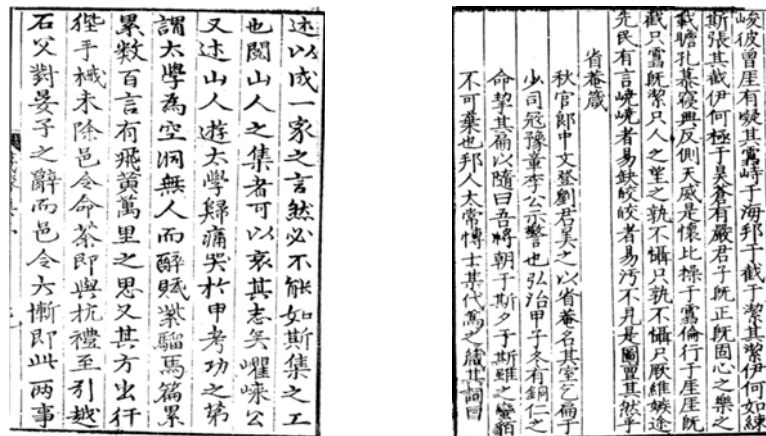 峻彼曾厓有嶷其雪峙于海邦于截于潔其潔伊何如練
斯張其截伊何極于昊蒼有嚴君子旣正旣固心之樂之
載瞻孔慕寢興反側天威是懷比操于雪倫行于厓厓旣
截只雪旣潔只人之望之孰不懾只孰不懾只厥維嫉途
先民有言嶢嶢者易缺皎皎者易汚不見是圖亶其然乎
省菴箴
秋官郎中文登劉君美之以省菴名其室乞扁于
少司冦豫章李公示警也弘治甲子冬有銅仁之
命挈其扁以隨曰吾將朝于斯夕于斯雖之蠻貊
不可棄也邦人太常博士某代爲之箴其詞曰
述以成一家之言然必不能如斯集之工
也閱山人之集者可以哀其志矣嶧公
又述山人遊太學歸痛哭於甲考功之第
謂太學為空洞無人而醉賦紫騮馬篇累
累數百言有飛黃萬里之思又其方出犴
狴手械未除邑令命茶即與抗禮至引越
石父對晏子之辭而邑令大慚即此兩事